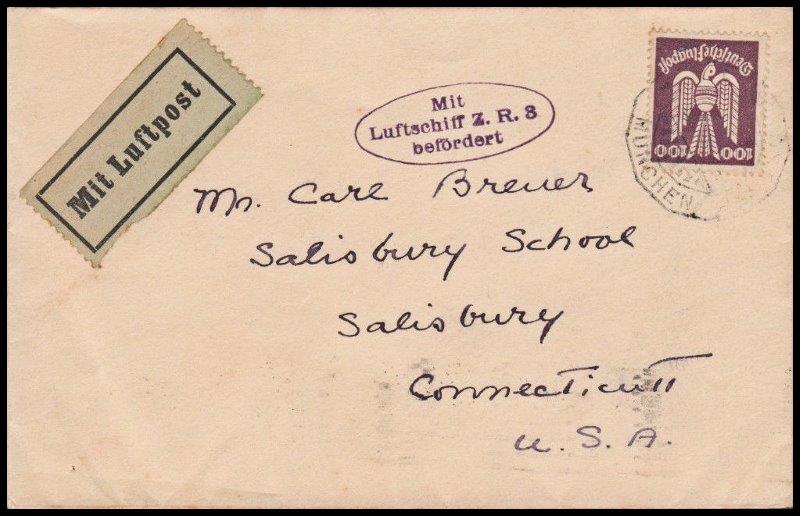 Mit Luftpost
Mit
Luftschiff Z. R. 3
befördert
Deutsche Flugpost
100 100
MÜNCHEN
Mr. Carl Breuer
Salisbury School
Salisbury
Connecticutt
U. S. A.